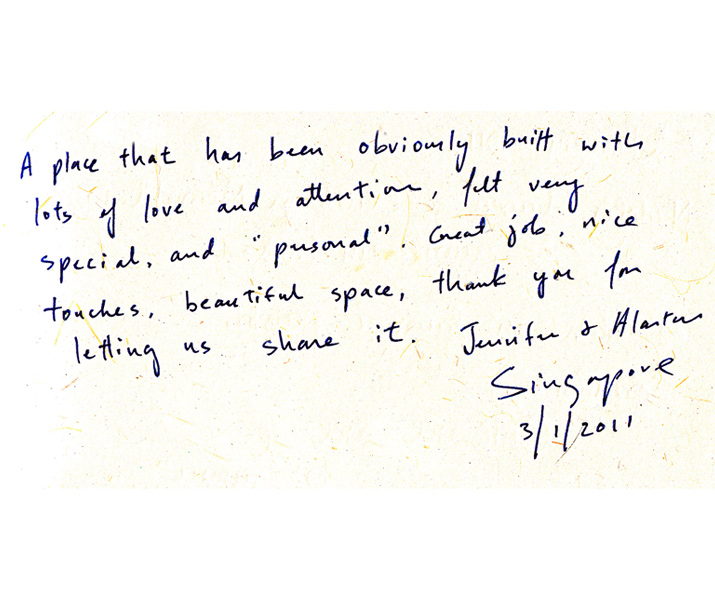 A place that has been obviously built with
lots of love and attention, felt very
special, and "personal". Great job, nice
touches, beautiful space, thank you for
letting us share it. Jennifer & Alastair
Singapore
3/1/2011